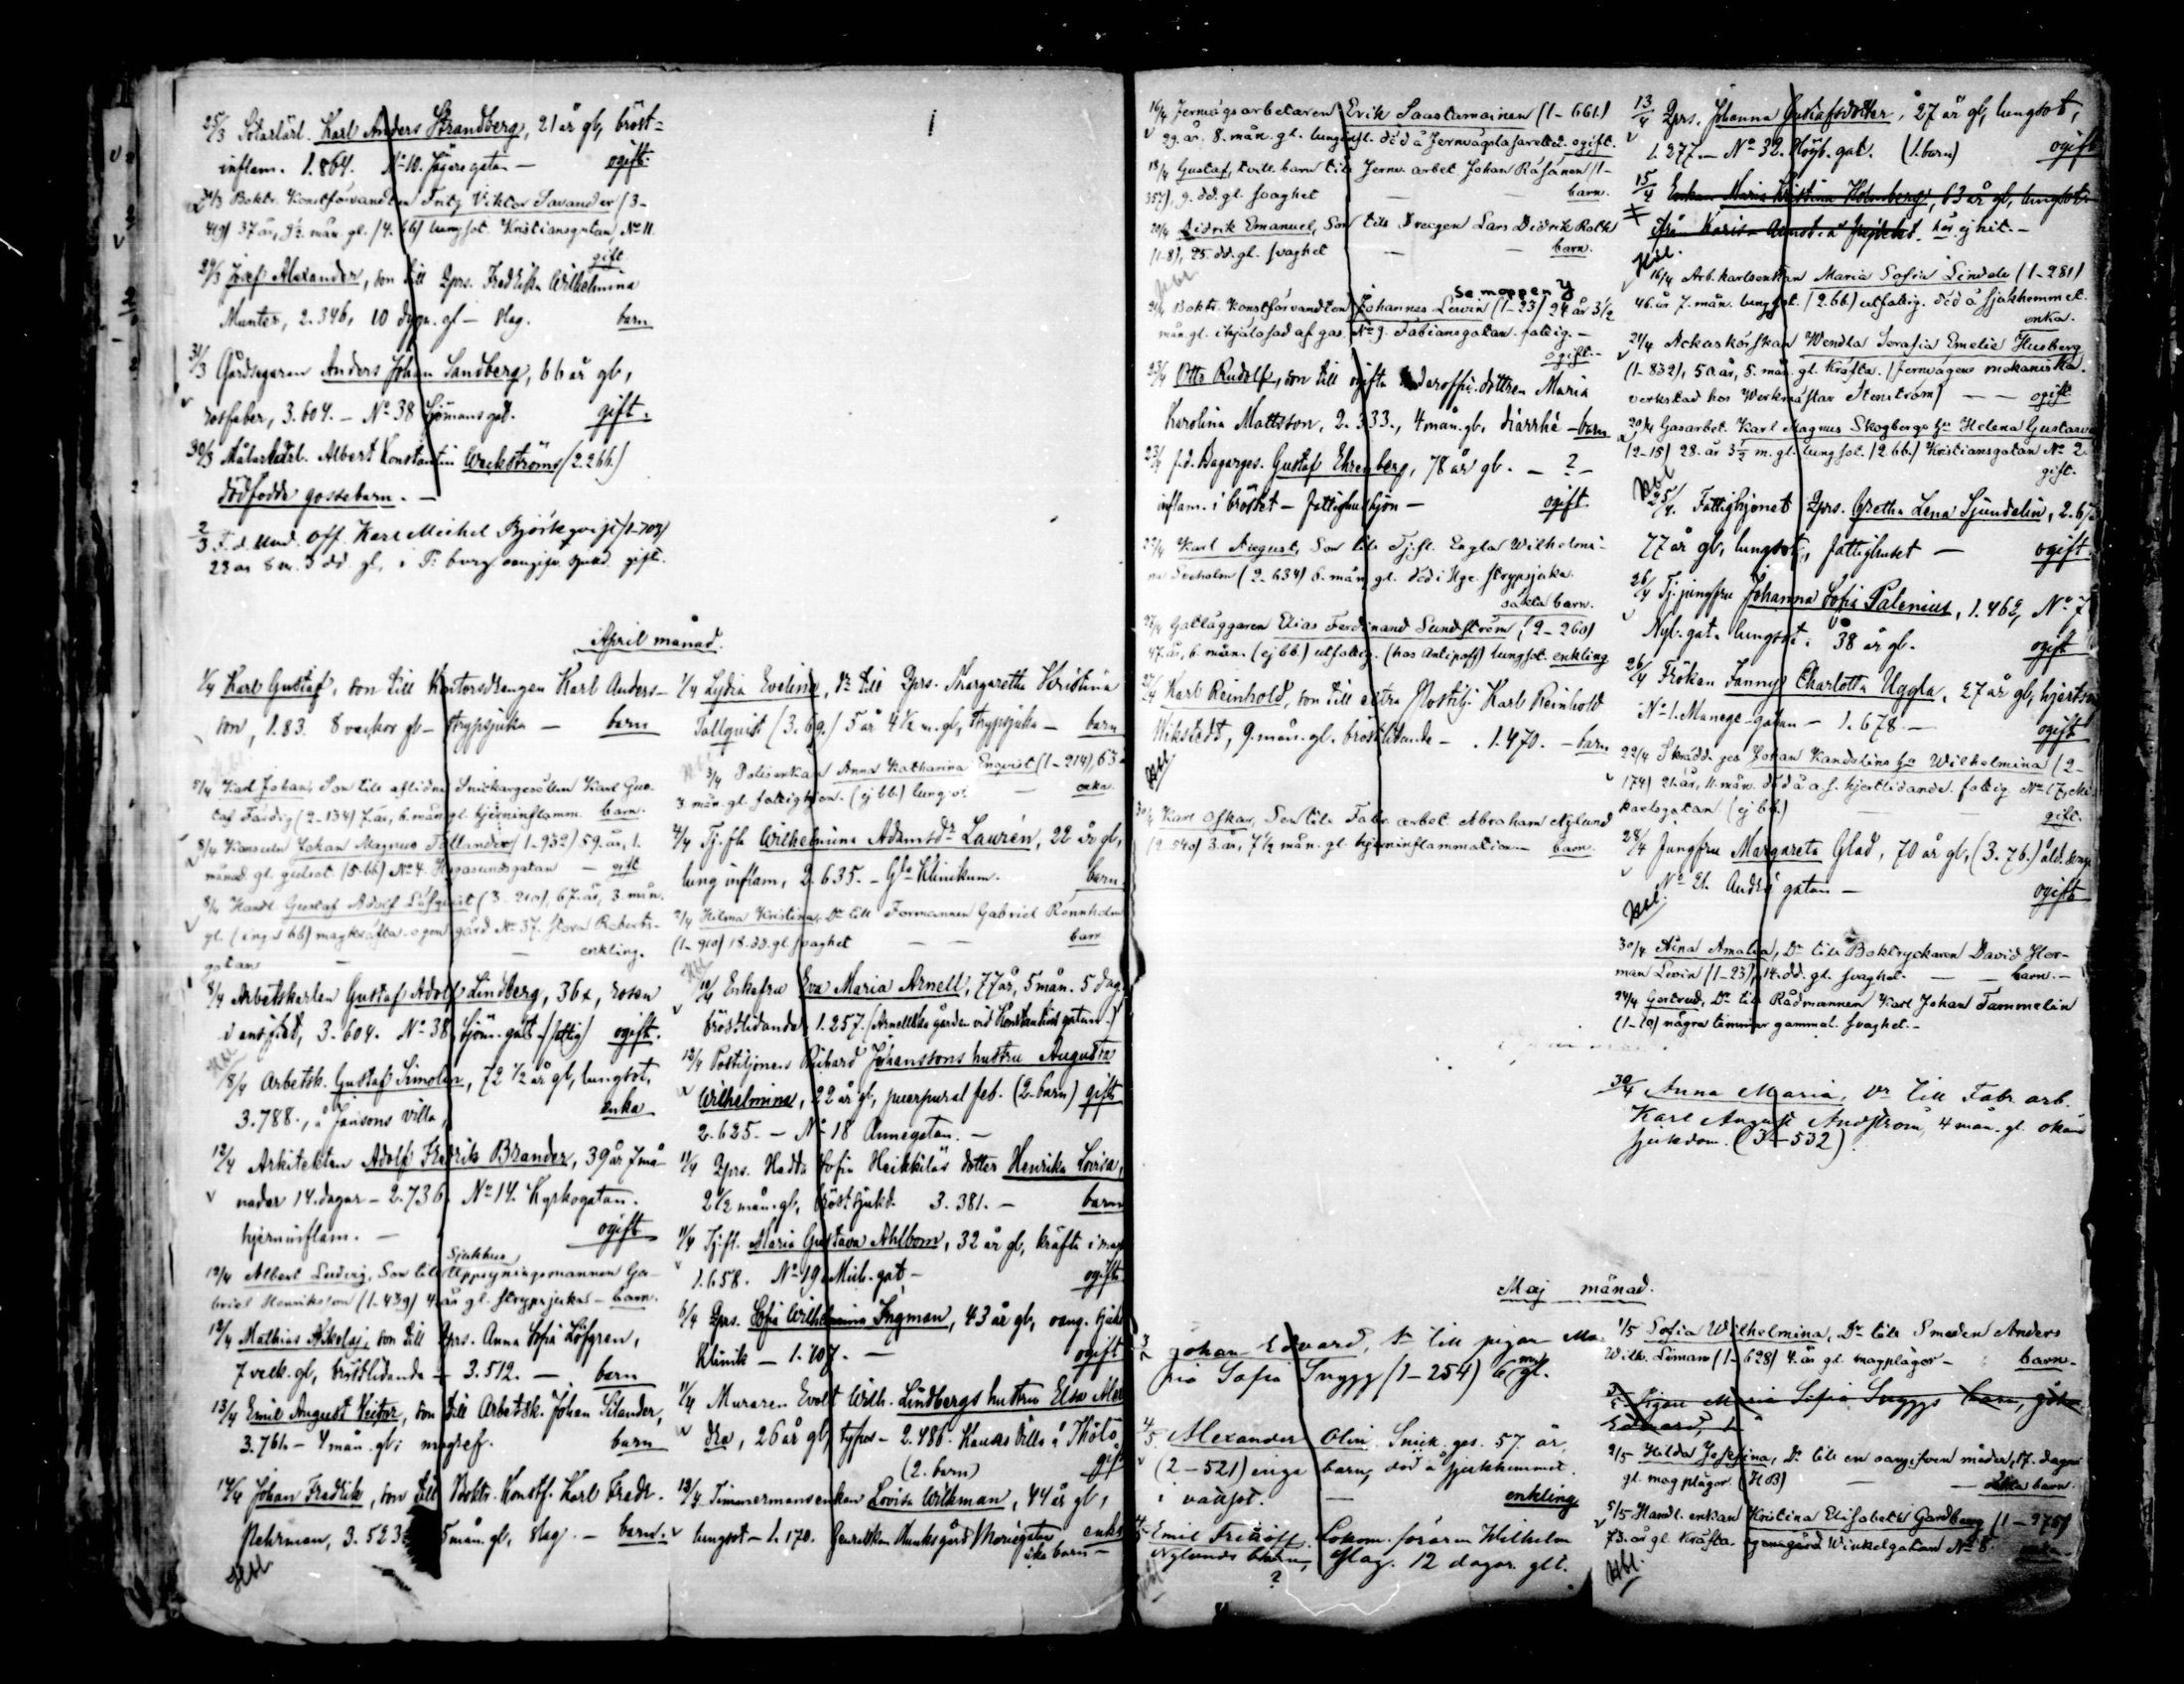 25/3 Sotarlärl. Karl Anders Strandberg, 21 år gl, bröst-
inflam. 1.864. No 10. Jägaregatan — ogift.
24/3 Boktr. Konstförvandten Fritz Viktor Savander (3-
419) 37 år, 9½ mån. gl. (4. bb) lungsot. Kristiansgatan, No 11.
gift
29/3 Josef Alexander, son till Qprs. Fredrika Wilhelmina
Munter, 2.346, 10 dygn. gl — slag. barn
31/3 Gårdsegaren Anders Johan Sandberg, 66 år gl,
rosfeber, 3.604. — No 38 Sjömansgat. gift.
30/3 Målarlärl. Albert Konstantin Weckströms (2.266.)
dödfödda gossebarn. —
2/3 F. d. Und. Off. Karl Michel Björkqvist (1-703)
23 år 8 m. 3 dd. gl, i T: borg gift.
April månad.
1/4 Karl Gustaf, son till Kontorsdrengen Karl Anders-
son, 1.83. 8 veckor gl — strypsjuka — barn
5/4 Karl Johan, Son till aflidne Snickargesällen Karl Gus-
taf Färdig (2-134) 7. år, 6. mån. gl. hjerninflamm. barn.
8/4 Johan Magnus Tallander (1-932) 59. år, 1.
månad gl. gulsot (5-bb) No 4. Hagasundsgatan — gift
8/4 Handl. Gustaf Adolf Löfqvist (3-210), 67. år, 3. mån.
gl. (inga bb) magkräfta. egen gård No 37. Stora Roberts-
gatan — — enkling.
8/4 Arbetskarlen Gustaf Adolf Lindberg, 36 , rosen
i ansigtet, 3.604. No 38, Sjöm. gat. (fattig) ogift.
8/4 Arbetsk. Gustaf Simolin, 72 ½ år gl, lungsot,
3.788., å Jansons villa, enka
12/4 Arkitekten Adolf Fredrik Brander, 39 år 7 må-
nader 14. dagar — 2.736. No 14. Kyrkogatan.
hjerninflam. — ogift
Sjukhus
12/4 Albert Ludvig, Son till Uppsyningsmannen Ga-
briel Henriksson (1-439) 4. år gl. strypsjuka — barn.
12/4 Mathias Nikolaj, son till Qprs. Anna Sofia Löfgren,
7 veck. gl, bröstlidande — 3.512. — barn
13/4 Emil August Victor, son till Arbetsk. Johan Silander,
3.761. — 4 mån. gl; magref. barn
14/4 Johan Fredrik, son till Boktr. Konstf. Karl Fredr.
Nehrman, 3.523 5 mån. gl, slag. — barn.
Hbl
1/4 Lydia Evelina, Dr till Qprs. Margaretha Kristina
Tallquist (3.69.) 5 år 4½ m. gl, strypsjuka — barn
3/4 Polisenkan Anna Katharina Enqvist (1-214), 63
3 mån. gl. fattighjon. (ej bb.) lungsot — enka.
4/4 Tj. fl. Wilhelmina Adamsdr Laurén, 22 år gl,
lunginflam, 2.635. — Gla Klinikum. barn.
7/4 Hilma Kristina, Dr till Formannen Gabriel Rönnholm
(1-910) 18. dd. gl. svaghet — — barn
10/4 Enkefru Eva Maria Arnell, 77 år, 5 mån. 5 dag.
bröstlidande, 1.257. (Arnellska gården vid Konstantinsgatan.)
12/4 Postiljonen Richard Johanssons hustru Augusta
Wilhelmina, 22 år gl, puerperal feb. (2. barn) gift
2.625. — No 18 Annegatan. —
11/4 Qprs. Hedda Sofia Heikkiläs dotter Henrika Lovisa,
2½ mån. gl, bröstsjukd. 3.381. — barn
11/4 Tjfl. Maria Gustava Ahlbom, 32 år gl, kräfta i mag
1.658. No 19. Mich. gat, — ogift
6/4 Qprs. Sofia Wilhelmina Ingman, 43 år gl, vang. sjukd
Klinik — 1.107. — ogift
11/4 Muraren Evert Wilh. Lindbergs hustru Elsa Alex
dra, 26 år gl, tyfus — 2.486. Kansas villa å Thölö
(2. barn) gift
12/4 Timmermansenkan Lovisa Wikman, 44 år gl,
lungsot — 1.170. Munksgård Mariegatan enka
icke barn —
16/4 Jernvägsarbetaren Erik Saastamoinen (1-661)
29. år. 8. mån. gl. lunginfl. död å Jernvägslasarettet. ogift.
18/4 Gustaf, tvill. barn till Jernv. arbet. Johan Räsänen (1-
357), 9. dd. gl. svaghet — — barn.
20/4 Didrik Emanuel, Son till Drengen Lars Didrik Roth
(1-8), 25. dd. gl. svaghet — — barn.
Se mappen Y
21/4 Boktr. Konstförvandten Johannes Lewin (1-23) 24 år 3½
mån. gl. ihjälosad af gas. No 9. Fabiansgatan. fattig. —
ogift. —
23/4 Otto Rudolf, son till ogifta Underoffic. dottren Maria
Karolina Mattsson, 2.333., 4 mån. gl, diarrhé — barn
23/4 f.d. Bagarges. Gustaf Ehrenberg, 78 år gl. — ? —
inflam. i bröstet — fattighushjon — ogift.
22/4 Karl August, Son till Tjfl. Engla Wilhelmi-
na Soeholm (2-634) 6. mån. gl. död i Hge. strypsjuka.
oäkta barn.
27/4 Gatläggaren Elias Ferdinand Sundström, (2-260)
47. år, 6. mån. (ej bb.) utfattig. (hos Antipoff) lungsot. enkling
27/4 Karl Reinhold, son till extra Postilj. Karl Reinhold
Wikstedt, 9. mån. gl. bröstlidande — . 1.470. — barn
Hbl
30/4 Karl Oskar, Son till Fabr. arbet. Abraham Nylund
(2-540) 3. år, 7½ mån. gl. hjerninflammation — barn.
Johan Edvard, Sn till pigan Ma-
ria Sofia Snygg (1-254) 6 m. gl.
4/5 Alexander Olin. Snick. ges. 57 år,
(2-521) inga barn, död å sjukhemmet.
i vattsot. — enkling
Emil Fritiof, Lokom. föraren Wilhelm
Nylunds barn, Slag. 12 dagar glt.
?
13/4 Qprs. Johanna Gustafsdotter, 27 år gl, lungsot,
1.277. — No 32. Högb. gat. (1. barn) ogift
15/4 Enkan Maria Kristina Holmberg, 63 år gl, lungsot.
hör ej hit. —
Hbl.
16/4 Arb. karlsenkan Maria Sofia Lindell (1-281)
46. år 7. mån. lungsot. (2. bb.) utfattig. död å sjukhemmet.
enka.
21/4 Ackuskörskan Wendla Serafia Emelie Husberg
(1-832), 50. år, 5. mån. gl. Kräfta. (Jernvägens mekaniska
verkstad hos Werkmästar Stenström) — — ogift.
20/4 Gasarbet. Karl Magnus Skogbergs hu Helena Gustava
(2-15) 28. år 3½ m. gl. lungsot. (2 bb.) Kristiansgatan No 2.
gift.
Hbl
25/4. Fattighjonet Qprs. Gretha Lena Sjundelin, 2.67
77 år gl, lungsot, fattighuset — ogift.
26/4 Tj. jungfru Johanna Sofia Palenius, 1.462, No 7
Nyl. gat. lungsot. 38 år gl. ogift
26/4 Fröken Fanny Charlotta Uggla, 27 år gl, hjertsl
No 1. Manege-gatan — 1.678. — ogift
22/4 Skrädd. ges Johan Kandelins hu Wilhelmina (2-
174) 21. år, 11. mån. död å a. s. hjertlidande. fattig No 17, Mi-
kaelsgatan (ej bb.) — — gift.
28/4 Jungfru Margareta Glad, 70 år gl, (3.76.) åld. lunga
No 21. Andrégatan — ogift
Hbl.
30/4 Aina Amalia, Dr till Boktryckaren David Her-
man Lewin (1-23), 14. dd. gl. svaghet. — — barn. —
24/4 Gertrud, Dr till Rådmannen Karl Johan Tammelin
(1-10) några timmar gammal. svaghet. —
30/4 Anna Maria, Dr till Fabr. arb.
Karl August Andström, 4 mån. gl. okänd
sjukdom. (3-532).
Maj månad.
1/5 Sofia Wilhelmina, Dr till Smeden Anders
Wilh. Liman (1-628) 4. år gl. magplågor — barn. —
Pigan Maria Sofia Snyggs barn, Johan
Edvard,
2/5 Hilda Josefina, Dr till en oangifven moder, 17. dagar
gl. magplågor (HB) — — oäkta barn.
5/5 Handl. enkan Kristina Elisabeth Gardberg (1-275)
73. år gl. Kräfta. egen gård Winkelgatan No 8. enka.
Hbl.